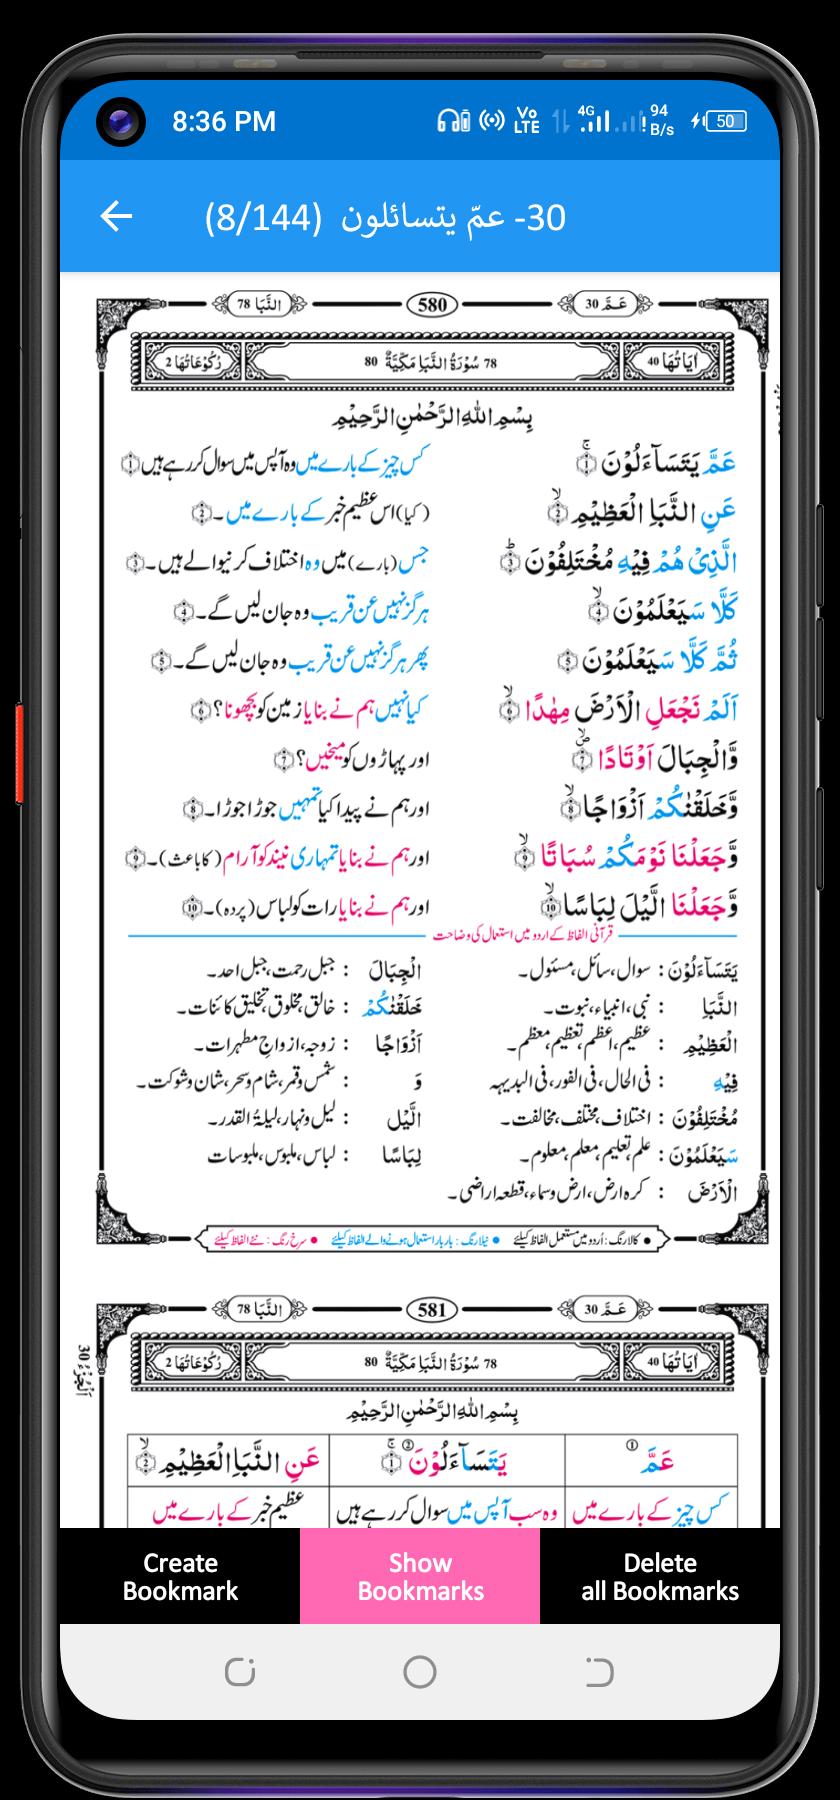 8:36 PM 4G Vo LTE 94 B/s 50
30- عمّ یتسائلون (8/144)
عَمَّ 30 580 النَّبَا 78
اٰيَاتُهَا 40 78 سُوْرَةُ النَّبَاِ مَكِّيَّةٌ 80 رُكُوْعَاتُهَا 2
بِسْمِ اللهِ الرَّحْمٰنِ الرَّحِيْمِ
عَمَّ يَتَسَآءَلُوْنَ ۚ 1 کس چیز کے بارے میں وہ آپس میں سوال کر رہے ہیں 1
عَنِ النَّبَاِ الْعَظِيْمِ ۙ 2 (کیا) اس عظیم خبر کے بارے میں۔ 2
الَّذِيْ هُمْ فِيْهِ مُخْتَلِفُوْنَ ؕ 3 جس (بارے) میں وہ اختلاف کرنیوالے ہیں۔ 3
كَلَّا سَيَعْلَمُوْنَ ۙ 4 ہرگز نہیں عن قریب وہ جان لیں گے۔ 4
ثُمَّ كَلَّا سَيَعْلَمُوْنَ 5 پھر ہرگز نہیں عن قریب وہ جان لیں گے۔ 5
اَلَمْ نَجْعَلِ الْاَرْضَ مِهٰدًا ۙ 6 کیا نہیں ہم نے بنایا زمین کو بچھونا؟ 6
وَّالْجِبَالَ اَوْتَادًا ۪ۙ 7 اور پہاڑوں کو میخیں؟ 7
وَّخَلَقْنٰكُمْ اَزْوَاجًا ۙ 8 اور ہم نے پیدا کیا تمہیں جوڑا جوڑا۔ 8
وَّجَعَلْنَا نَوْمَكُمْ سُبَاتًا ۙ 9 اور ہم نے بنایا تمہاری نیند کو آرام (کا باعث)۔ 9
وَّجَعَلْنَا الَّيْلَ لِبَاسًا ۙ 10 اور ہم نے بنایا رات کو لباس (پردہ)۔ 10
قرآنی الفاظ کے اردو میں استعمال کی وضاحت
يَتَسَآءَلُوْنَ : سوال، سائل، مسئول۔ الْجِبَالَ : جبل رحمت، جبل احد۔
النَّبَاِ : نبی، انبیاء، نبوت۔ خَلَقْنٰكُمْ : خالق، مخلوق، تخلیق کائنات۔
الْعَظِيْمِ : عظیم، اعظم، تعظیم، معظم۔ اَزْوَاجًا : زوجہ، ازواجِ مطہرات۔
فِيْهِ : فی الحال، فی الفور، فی البدیہہ وَ : شمس و قمر، شام و سحر، شان و شوکت۔
مُخْتَلِفُوْنَ : اختلاف، مختلف، مخالفت۔ الَّيْل : لیل و نہار، لیلۃ القدر۔
سَيَعْلَمُوْنَ : علم، تعلیم، معلم، معلوم۔ لِبَاسًا : لباس، ملبوس، ملبوسات
الْاَرْضَ : کرہ ارض، ارض و سماء، قطعہ اراضی۔
• کالا رنگ : اُردو میں مستعمل الفاظ کیلئے • نیلا رنگ : بار بار استعمال ہونے والے الفاظ کیلئے • سرخ رنگ : نئے الفاظ کیلئے
عَمَّ 30 581 النَّبَا 78
اَلْجُزْءُ 30
اٰيَاتُهَا 40 78 سُوْرَةُ النَّبَاِ مَكِّيَّةٌ 80 رُكُوْعَاتُهَا 2
بِسْمِ اللهِ الرَّحْمٰنِ الرَّحِيْمِ
عَمَّ ① يَتَسَآءَلُوْنَ ② ۚ 1 عَنِ النَّبَاِ الْعَظِيْمِ ۙ 2
کس چیز کے بارے میں وہ سب آپس میں سوال کر رہے ہیں عظیم خبر کے بارے میں
Create Bookmark
Show Bookmarks
Delete all Bookmarks